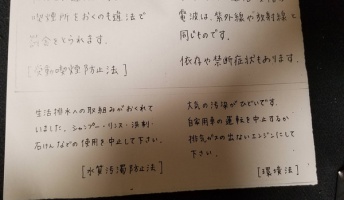 喫煙所をおくのも違法で
罰金をとられます。
[受動喫煙防止法]
電波は、紫外線や放射線と
同じものです。
依存や禁断症状もあります。
生活排水への取組みがおくれて
いました。シャンプー・リンス・洗剤・
石けんなどの使用を中止して下さい。
[水質汚濁防止法]
大気の汚染がひどいです。
自家用車の運転を中止するか
排気ガスの出ないエンジンにして
下さい。
[環境法]